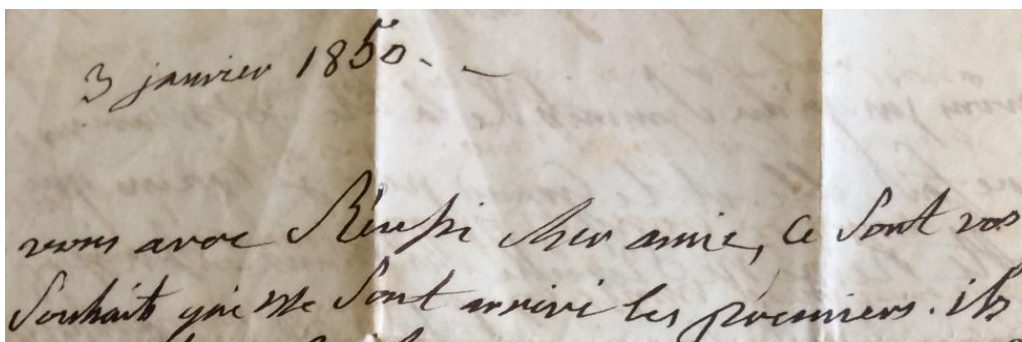 3 janvier 1850. -
vous avoc Réussi cher amie, ce sont vos
Souhaits qui me sont arrivé les premiers. ils